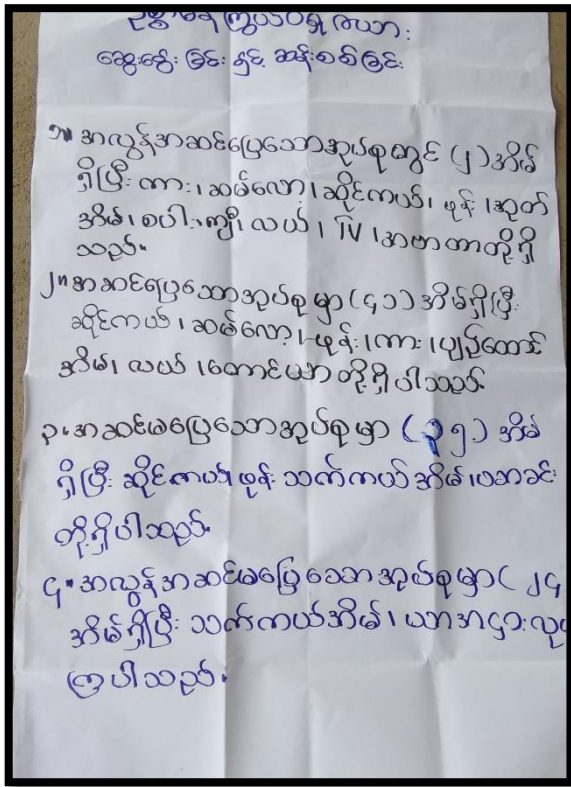 ဥစ္စာဓန ကြွယ်ဝမှု ဇယား
ဆွေးနွေးခြင်းနှင့် ဆန်းစစ်ခြင်း
၁။ အလွန်အဆင်ပြေသောအုပ်စုတွင် (၂) အိမ်
ရှိပြီး ကား၊ ဆမ်လော့၊ ဆိုင်ကယ်၊ ဖုန်း၊ အုတ်
အိမ်၊ စပါးကျီ၊ လယ်၊ TV ၊
သည်။
၂။ အဆင်ပြေသောအုပ်စုမှာ (၄၁) အိမ်ရှိပြီး
ဆိုင်ကယ်၊ ဆမ်လော့၊ ဖုန်း၊ ကား၊ ပျဉ်ထောင်
အိမ်၊ လယ်၊ တောင်ယာ တို့ရှိပါသည်။
၃။ အဆင်မပြေသောအုပ်စုမှာ (၃၅) အိမ်
ရှိပြီး ဆိုင်ကယ်၊ ဖုန်း သက်ကယ်အိမ်၊
တို့ရှိပါသည်။
၄။ အလွန်အဆင်မပြေသောအုပ်စုမှာ ( ၂၄
အိမ်ရှိပြီး သက်ကယ်အိမ်၊ ယာအငှားလုပ်
ကြပါသည်။